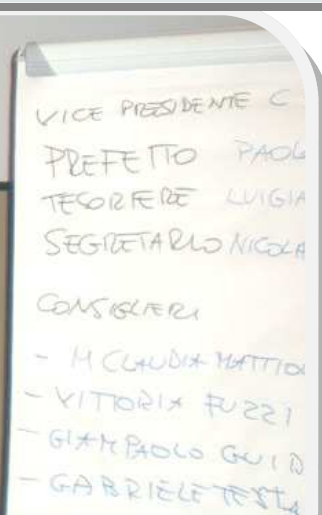 VICE PRESIDENTE C
PREFETTO PAOL
TESORIERE LUIGIA
SEGRETARIO NICOLA
CONSIGLIERI
- M CLAUDIA MATTIO
- VITTORIA FUZZI
- GIAMPAOLO GUID
- GABRIELE TESTA